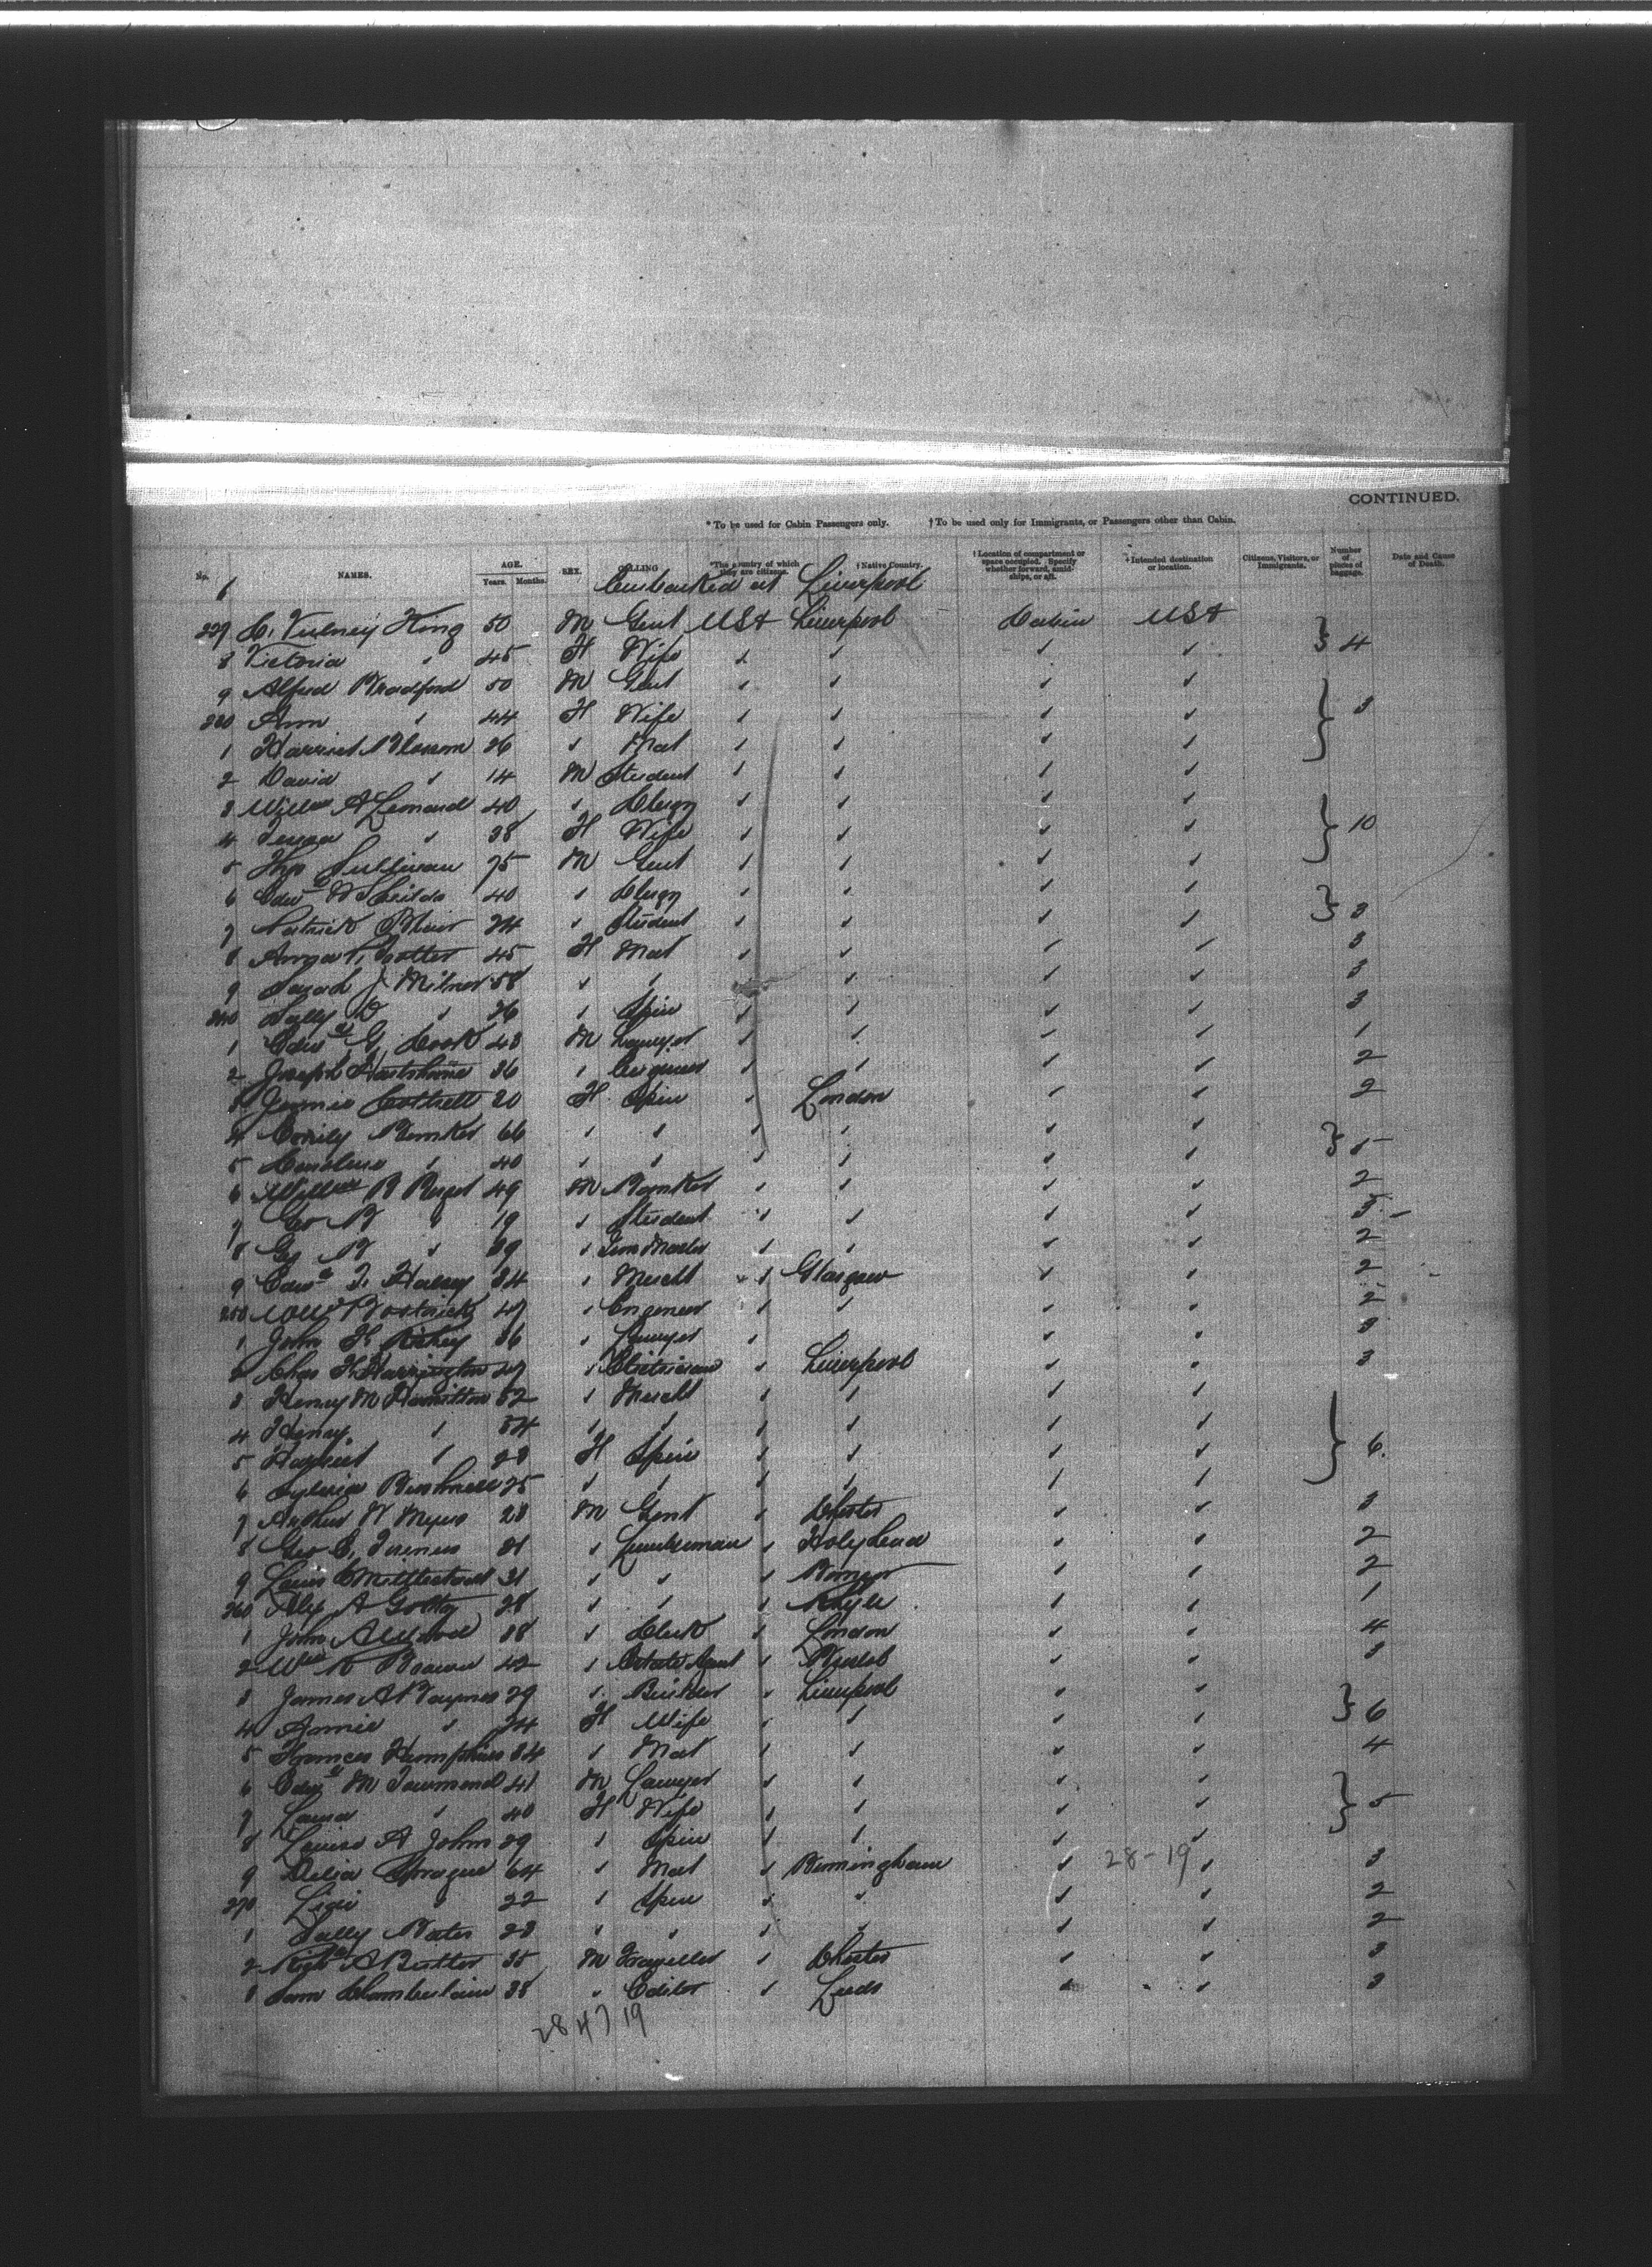 CONTINUED.
* To be used for Cabin Passengers only. † To be used only for Immigrants, or Passengers other than Cabin.
No. NAMES. AGE. Years. Months. SEX. CALLING *The country of which they are citizens. †Native Country. †Location of compartment or space occupied. Specify whether forward, amidships, or aft. Intended destination or location. Citizens, Visitors, or Immigrants. Number of pieces of baggage. Date and Cause of Death.
Embarked at Liverpool
King 50 M Gent USA Liverpool Cabin USA
8 Victoria " 45 F Wife } 4
9 Alfred Bradford 50 M Gent
230 Ann " 44 F Wife } 3
1 Harriet Blossom 36 " Mat
2 David " 14 M Student
3 Willm A Leonard 40 " Clergy
4 " 38 F Wife } 10
5 Sullivan 75 M Gent
6 Edwd W Shields 40 " Clergy
7 Patrick 24 " Student } 3
8 Potter 45 F Mat 3
9 Sarah J Milner 58 " " 3
240 Sally D " 26 " Spin 3
1 Edwd G. Cook 43 M Lawyer 1
2 Joseph Hartshorne 36 " Engineer 2
3 Jennie Cottrell 20 F Spin London 2
4 Emily Bunker 66
5 Caroline " 40 } 5
6 49 M Banker 2
7 Geo B " 19 " Student 5
8 Geo B " 39 2
9 Edwd Halsey 34 " Mercht Glasgow 2
250 Bostwick 47 " Engineer 2
1 John 36 " Lawyer 3
2 Chas H Harrington 47 Liverpool 3
3 Henry M Hamilton 52 " Mercht
4 Henry " 54
5 Harriet " 23 F Spin } 6
6 Sylvia Bushnell 25
7 Arthur W Myers 23 M Gent Chester 3
8 Geo C. Turner 31 " Lumberman Holyhead 2
9 Louis 31 " " Bangor 2
260 Alex A 28 " " Rhyle 1
1 John 38 " Clerk London 4
2 Wm Brown 42 " Estate Agent 3
3 James A Baynes 29 " Builder Liverpool
4 Annie " 24 F Wife } 6
5 Frances Humphries 34 " Mat 4
6 Edwd M Townsend 41 M Lawyer
7 Laura " 40 F Wife } 5
8 Louise A John 29 " Spin
9 Delia Sprague 64 " Mat Birmingham 28-19 3
270 " 22 " Spin 2
1 Sally Bates 23 2
2 Richd A Butler 35 M Traveller Chester 3
3 Sam Chamberlain 38 " Editor Leeds 3
28 47 19